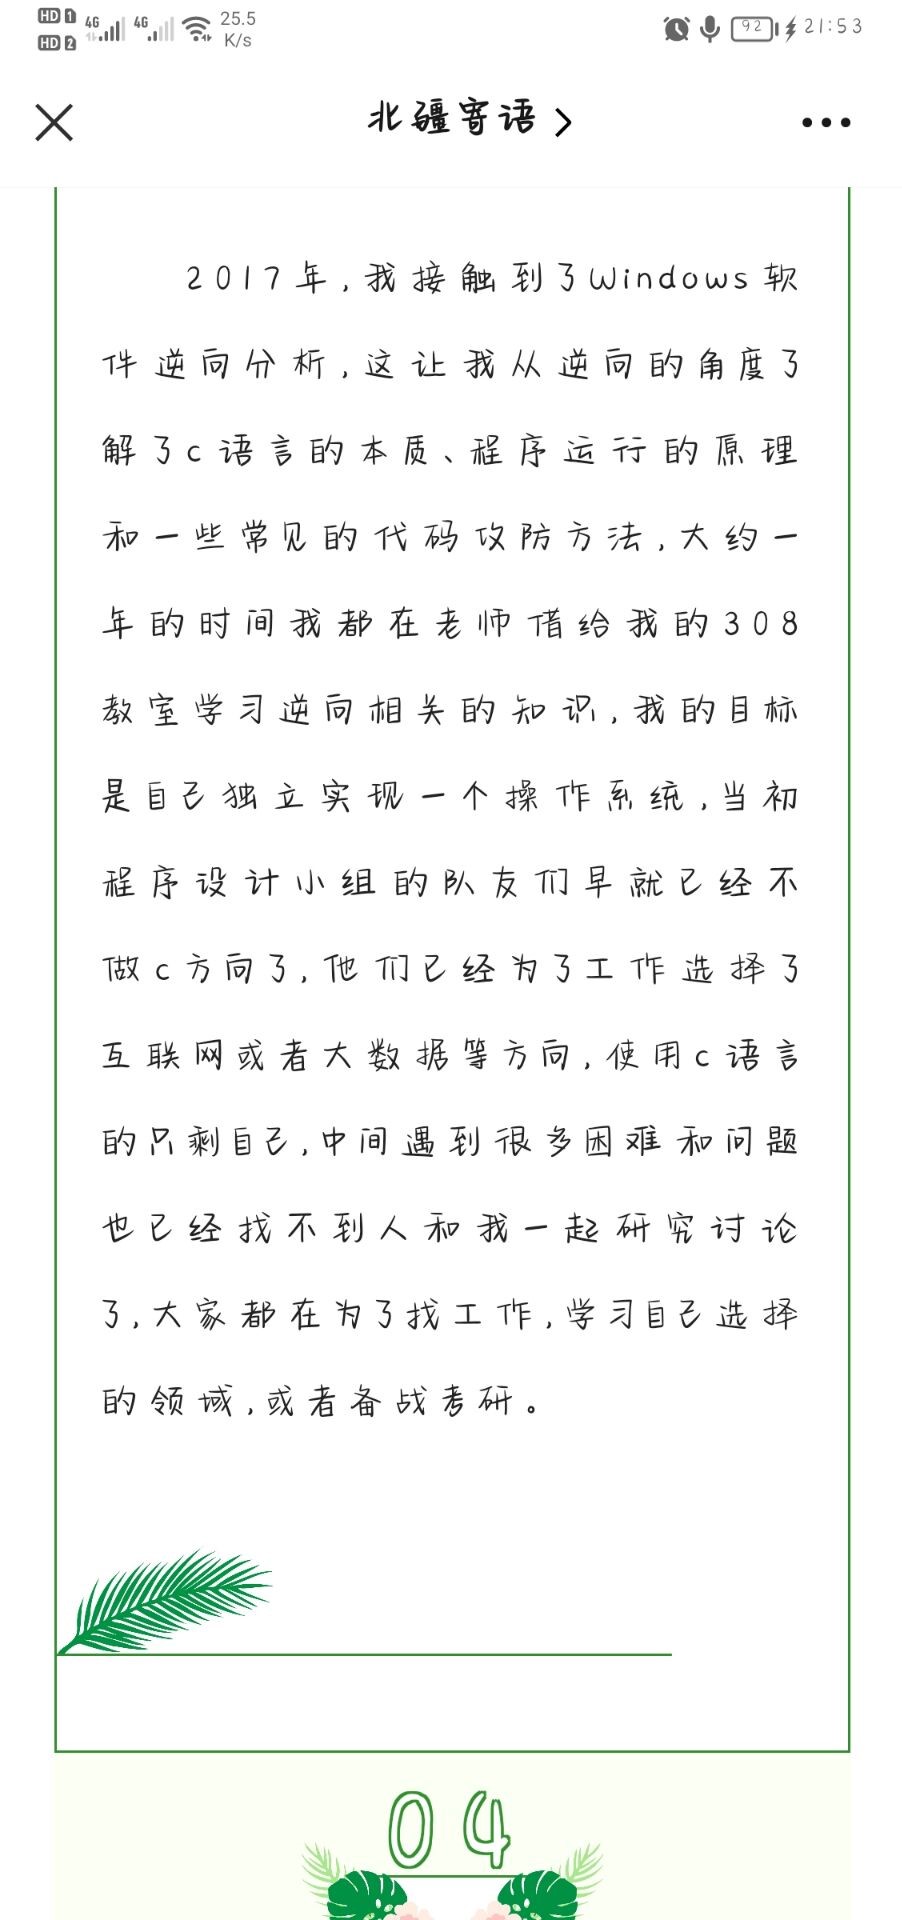 HD 1 4G 4G 25.5 K/s 92 21:53
HD 2
北疆寄语
2017年,我接触到了Windows软
件逆向分析,这让我从逆向的角度了
解了c语言的本质、程序运行的原理
和一些常见的代码攻防方法,大约一
年的时间我都在老师借给我的308
教室学习逆向相关的知识,我的目标
是自己独立实现一个操作系统,当初
程序设计小组的队友们早就已经不
做c方向了,他们已经为了工作选择了
互联网或者大数据等方向,使用c语言
的只剩自己,中间遇到很多困难和问题
也已经找不到人和我一起研究讨论
了,大家都在为了找工作,学习自己选择
的领域,或者备战考研。
04